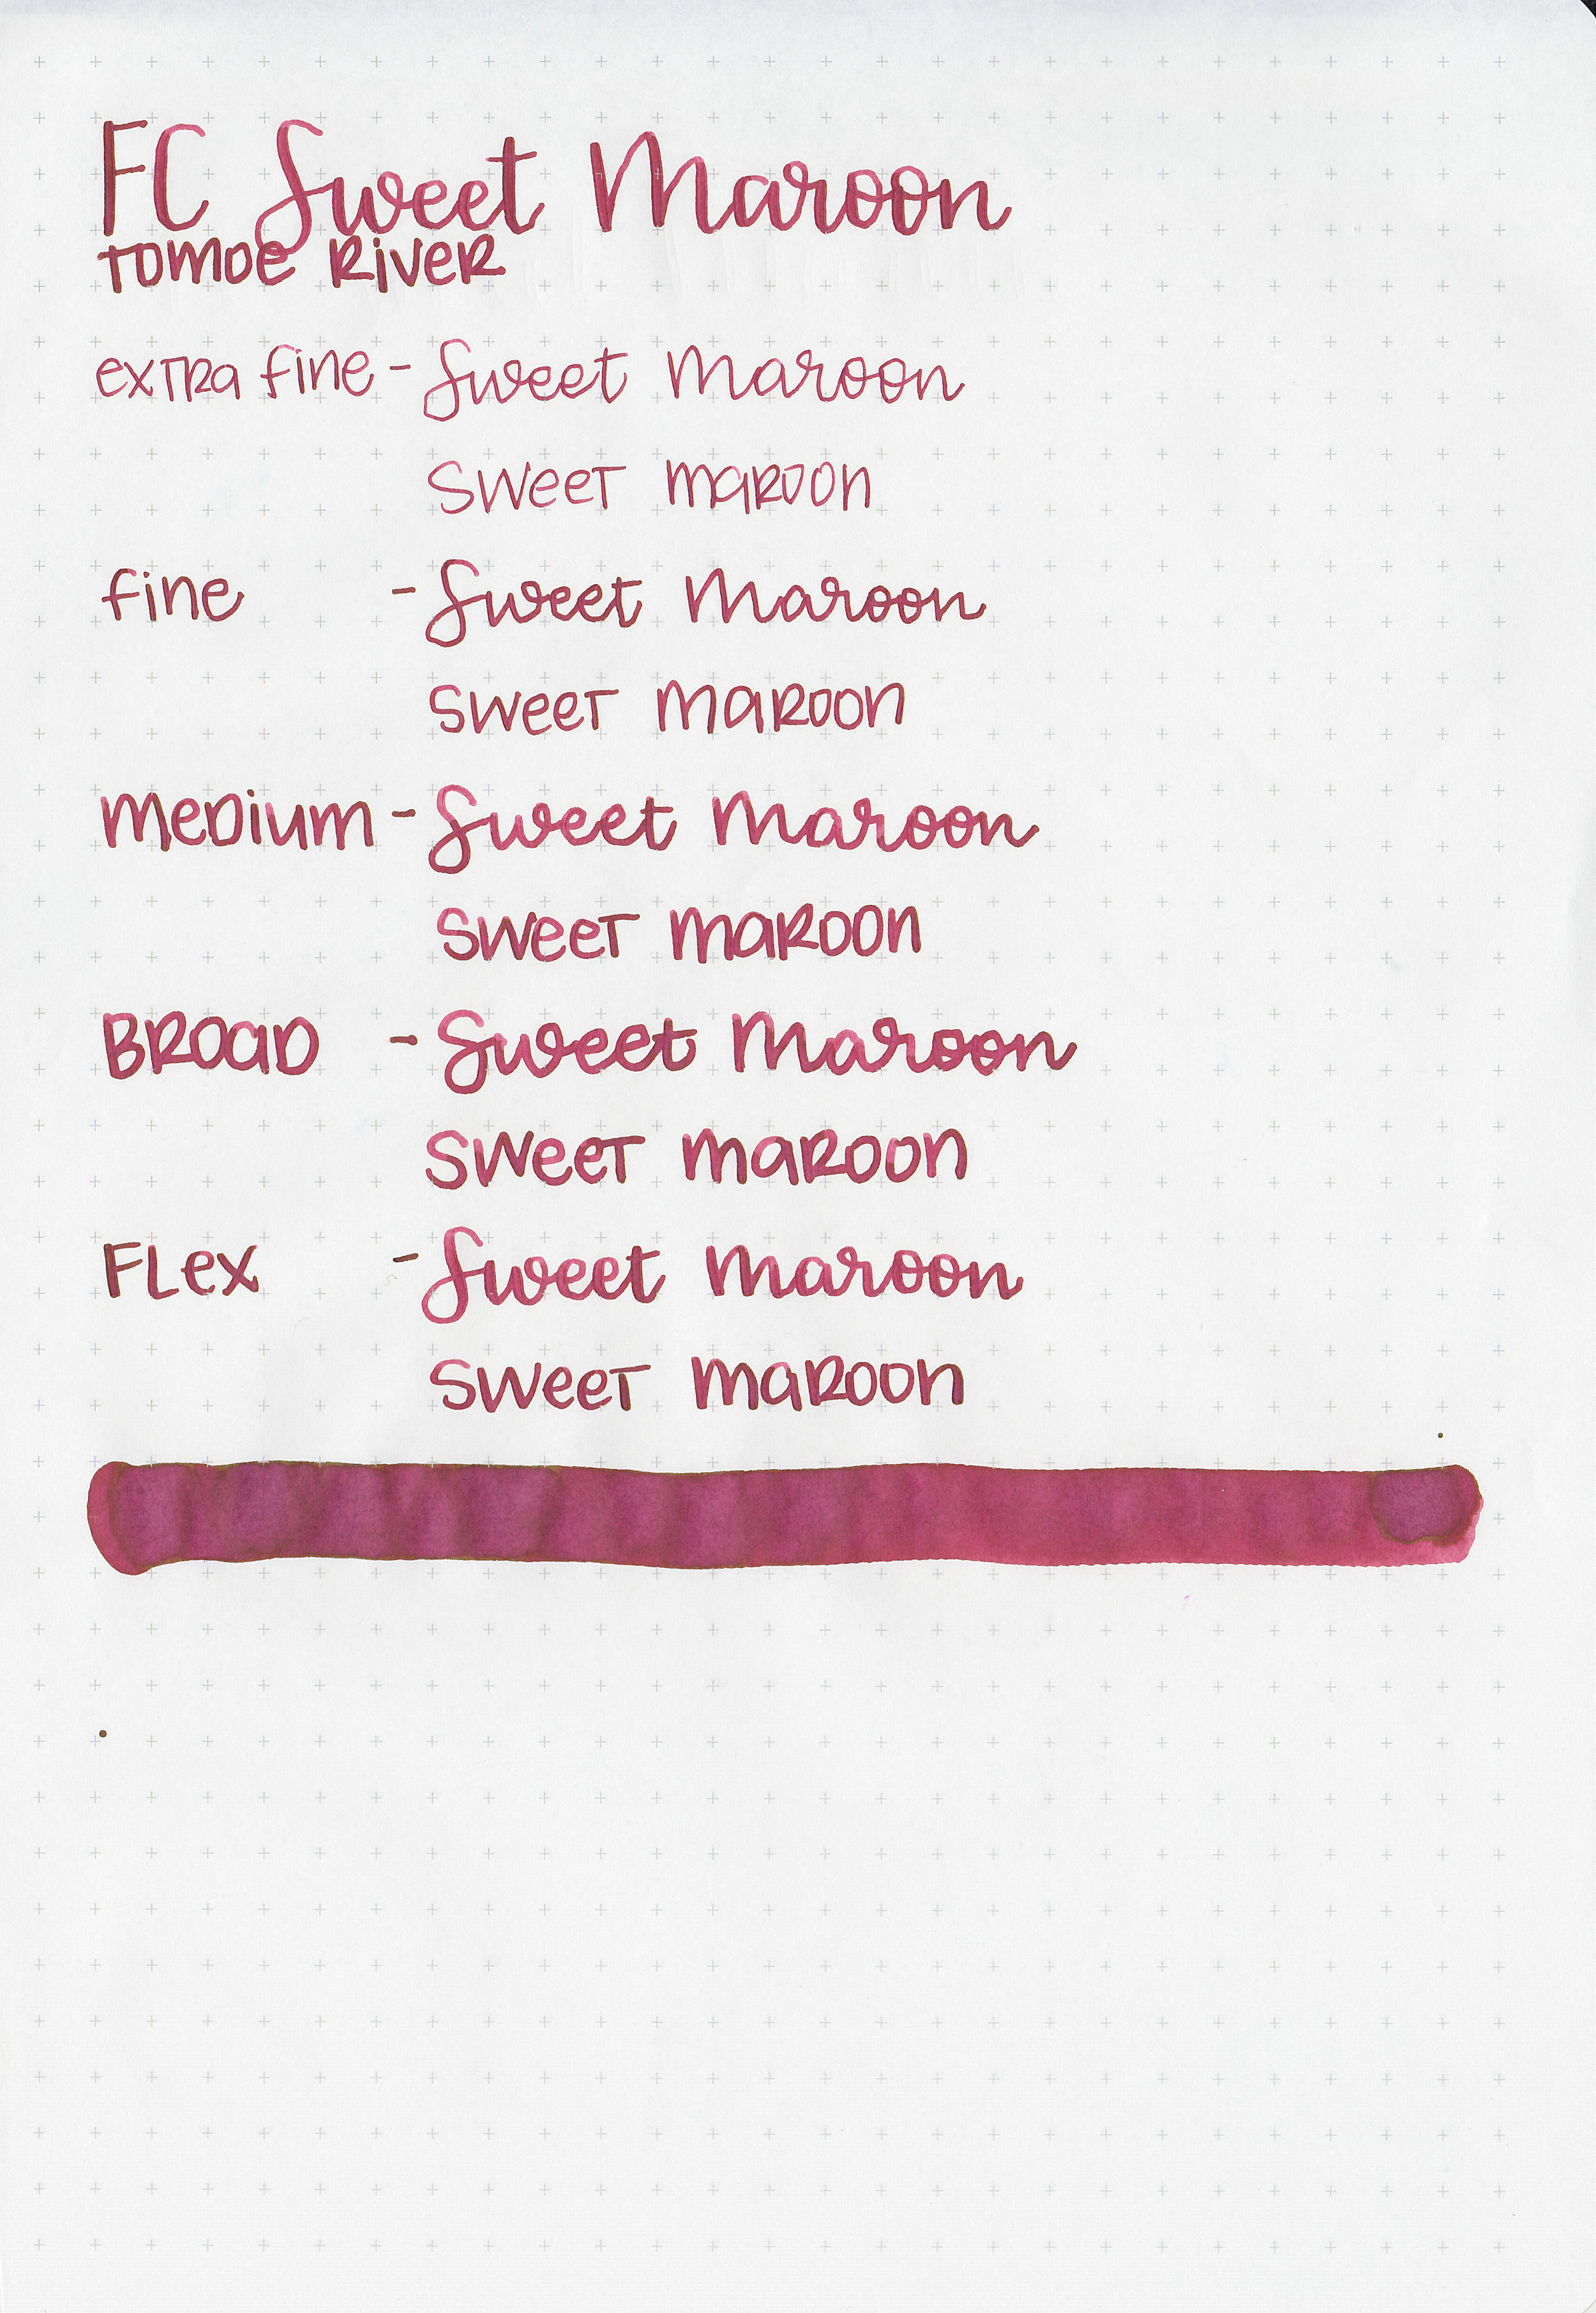 FC Sweet Maroon
Tomoe River
extra fine - Sweet Maroon
Sweet Maroon
fine - Sweet Maroon
Sweet Maroon
Medium - Sweet Maroon
Sweet Maroon
Broad - Sweet Maroon
Sweet Maroon
Flex - Sweet Maroon
Sweet Maroon